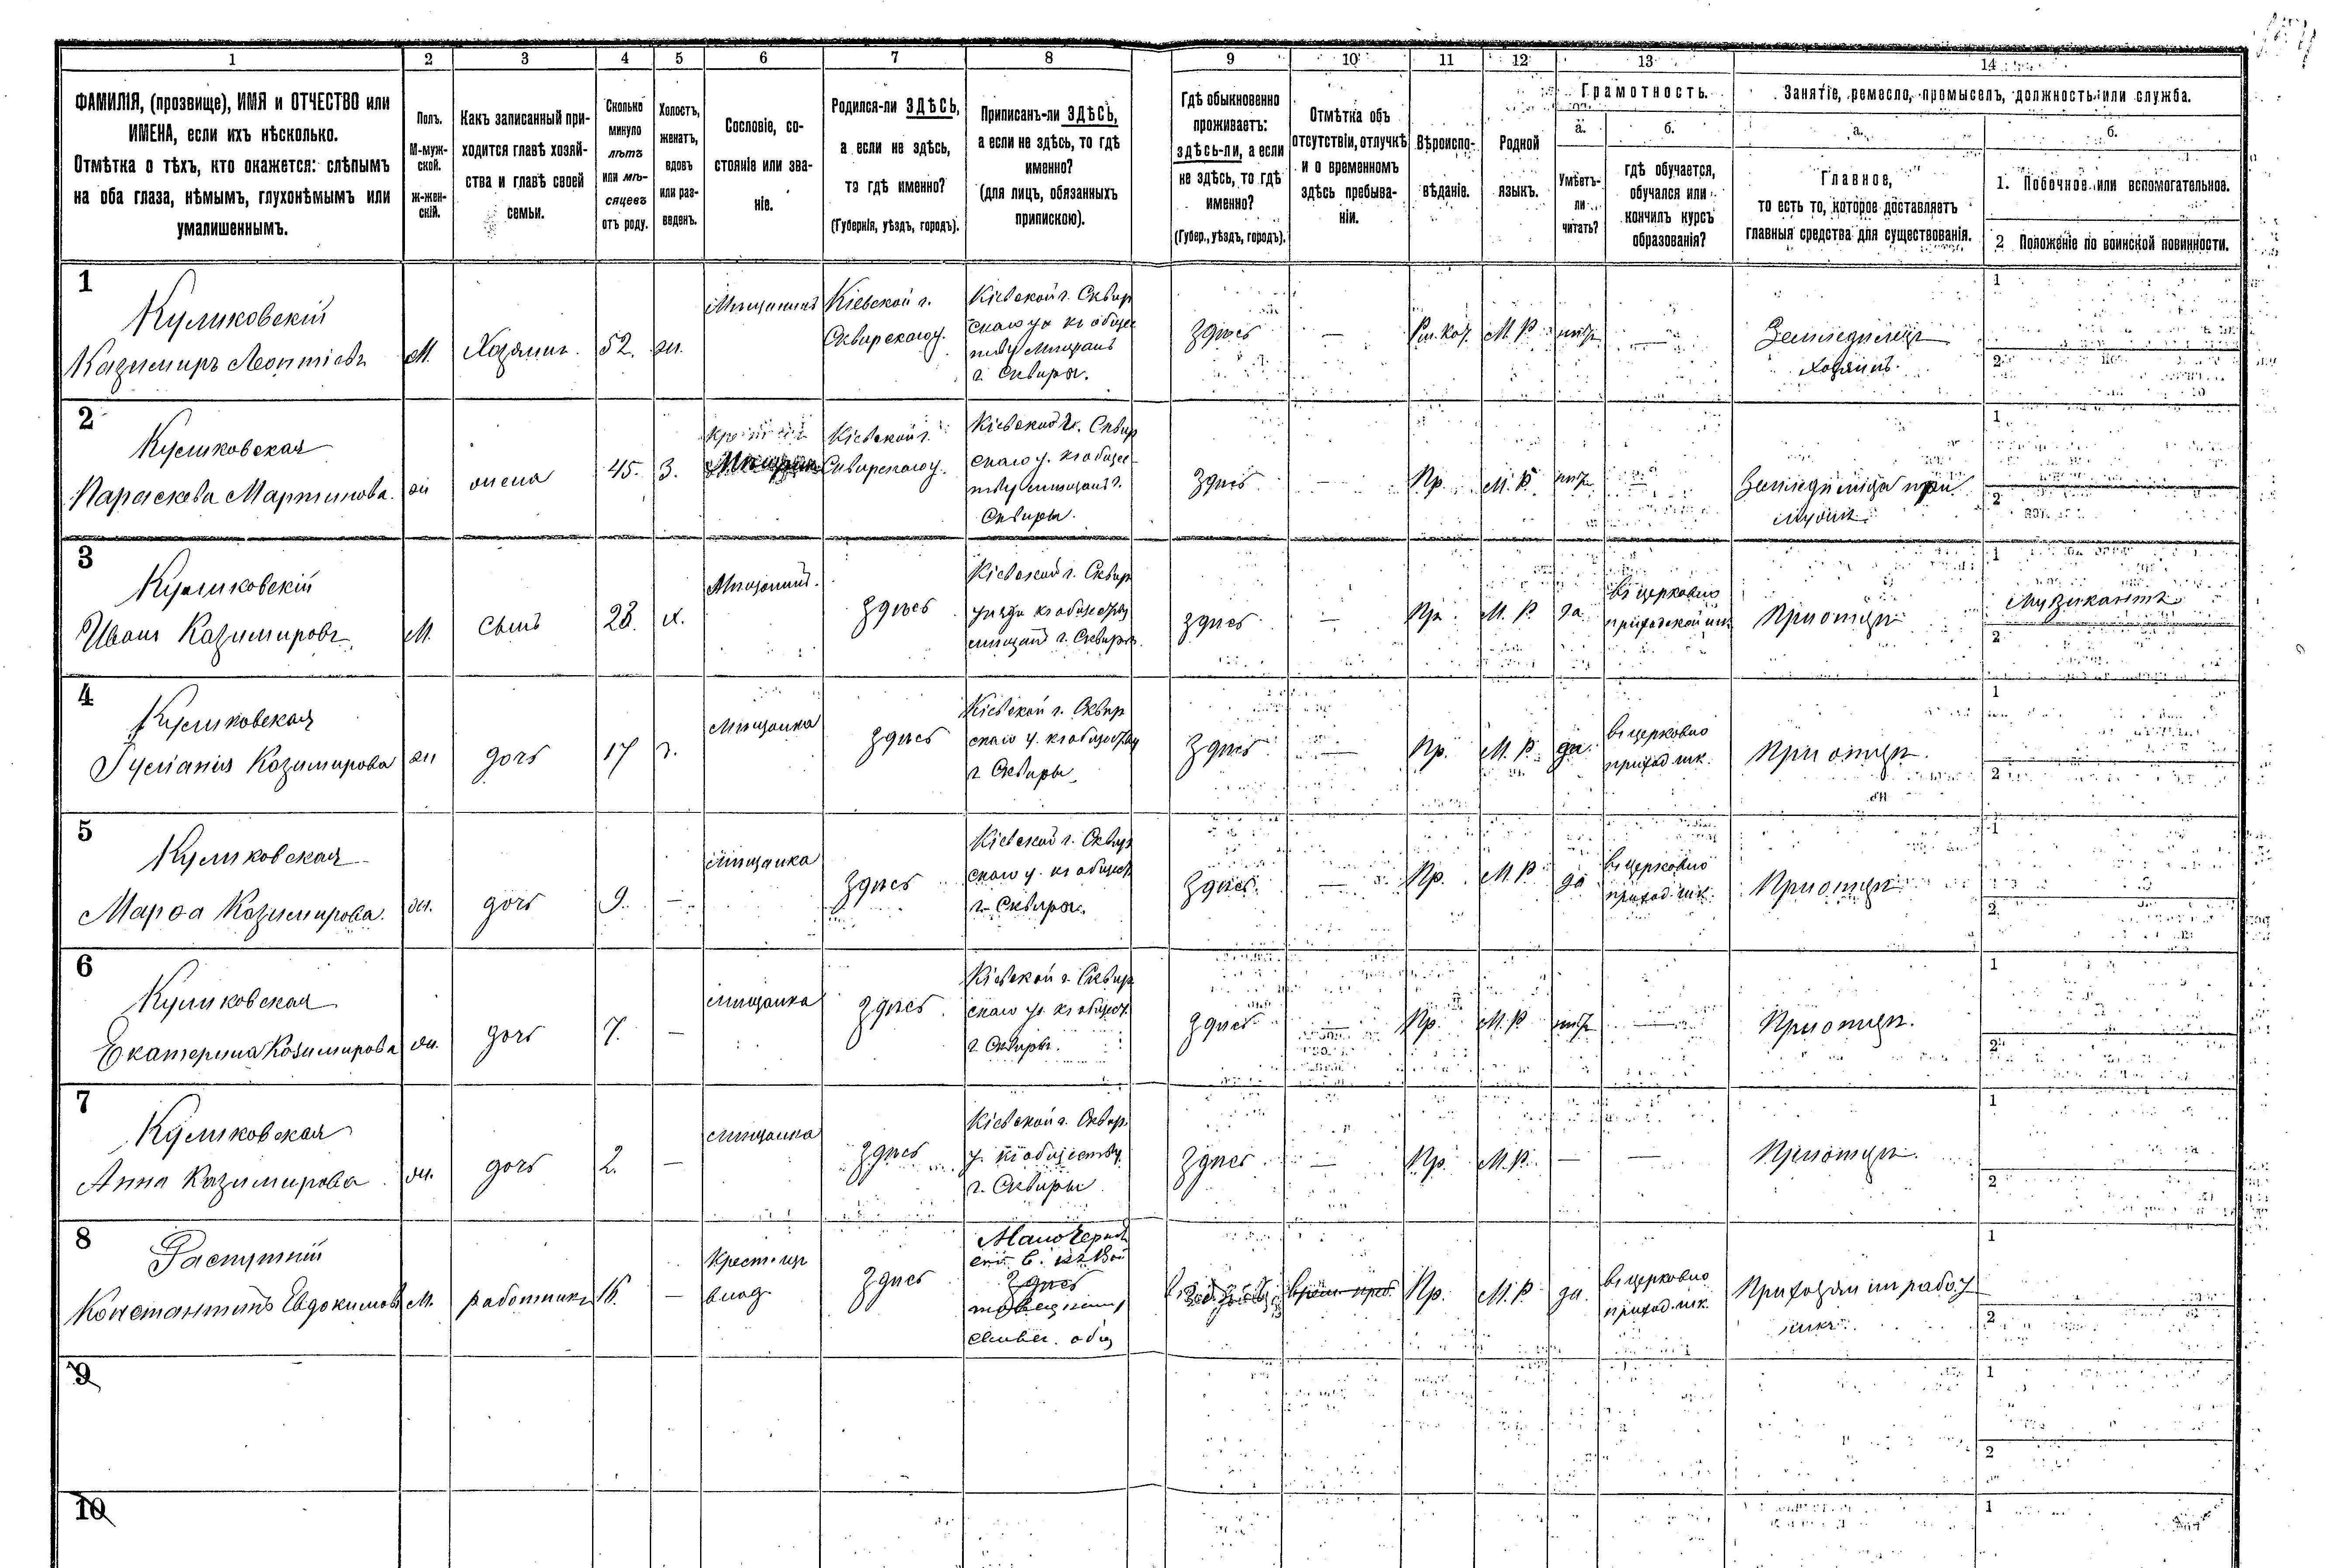 1 2 3 4 5 6 7 8 9 10 11 12 13 14
ФАМИЛІЯ, (прозвище), ИМЯ и ОТЧЕСТВО или
ИМЕНА, если ихъ нѣсколько.
Отмѣтка о тѣхъ, кто окажется: слѣпымъ
на оба глаза, нѣмымъ, глухонѣмымъ или
умалишеннымъ.
Полъ.
М-муж-
ской.
ж-жен-
скій.
Какъ записанный при-
ходится главѣ хозяй-
ства и главѣ своей
семьи.
Сколько
минуло
лѣтъ
или мѣ-
сяцевъ
отъ роду.
Холостъ,
женатъ,
вдовъ
или раз-
веденъ.
Сословіе, со-
стояніе или зва-
ніе.
Родился-ли ЗДѢСЬ,
а если не здѣсь,
то гдѣ именно?
(Губернія, уѣздъ, городъ).
Приписанъ-ли ЗДѢСЬ,
а если не здѣсь, то гдѣ
именно?
(для лицъ, обязанныхъ
припискою).
Гдѣ обыкновенно
проживаетъ:
здѣсь-ли, а если
не здѣсь, то гдѣ
именно?
(Губер., уѣздъ, городъ).
Отмѣтка объ
отсутствіи, отлучкѣ
и о временномъ
здѣсь пребыва-
ніи.
Вѣроиспо-
вѣданіе.
Родной
языкъ.
Грамотность.
а.
Умѣетъ-
ли
читать?
б.
гдѣ обучается,
обучался или
кончилъ курсъ
образованія?
Занятіе, ремесло, промыселъ, должность или служба.
а.
Главное,
то есть то, которое доставляетъ
главныя средства для существованія.
б.
1. Побочное или вспомогательное.
2 Положеніе по воинской повинности.
1
Куликовскій
Казимиръ Леонтіевъ
М.
Хозяинъ.
52.
ж.
Мѣщанинъ
Кіевской г.
Сквирскаго у.
Кіевской г. Сквир
скаго у. къ общес
тву мѣщанъ
г. Сквиры.
Здѣсь
—
Рм. Кат.
М. Р.
нѣтъ
—
Земледѣлецъ
хозяинъ.
1
2
2
Куликовская
Параскева Мартинова.
ж
жена
45.
З.
Кіевской г.
Сквирскаго у.
Кіевской г. Сквир
скаго у. къ общес
тву мѣщанъ г.
Сквиры.
Здѣсь
—
Пр.
М. Р.
нѣтъ
—
Земледѣлица при
мужѣ.
1
2
3
Куликовскій
Иванъ Казимировъ
М.
сынъ
23.
х.
Мѣщанинъ.
Здѣсь
Кіевской г. Сквир
уѣзда къ обществу
мѣщанъ г. Сквиры.
Здѣсь
—
Пр.
М. Р
да
въ церковно
приходской шк
При отцѣ
1
Музикантъ
2
4
Куликовская
Іуліанія Казимирова
ж
дочь
17
д.
мѣщанка
Здѣсь
Кіевской г. Сквир
скаго у. къ обществу
г. Сквиры
Здѣсь
—
Пр.
М. Р.
да.
въ церковно
приход. шк.
При отцѣ.
1
2
5
Куликовская
Марѳа Казимирова.
ж.
дочь
9.
—
мѣщанка
Здѣсь
Кіевской г. Сквир
скаго у. къ общест
г. Сквиры.
Здѣсь.
—
Пр.
М. Р
да
въ церковно
приход. шк.
При отцѣ
1
2
6
Куликовская
Екатерина Казимирова
ж.
дочь
7.
—
мѣщанка
Здѣсь.
Кіевской г. Сквир
скаго у. къ общест.
г. Сквиры.
Здѣсь
—
Пр.
М. Р
нѣтъ
—
При отцѣ.
1
2
7
Куликовская
Анна Казимирова
ж.
дочь
2.
—
мѣщанка
Здѣсь
Кіевской г. Сквир.
у. къ обществу
г. Сквиры
Здѣсь.
—
Пр.
М. Р.
—
—
При отцѣ.
1
2
8
Распутній
Константинъ Евдокимовъ
М.
работникъ
16.
—
Крест. изъ
влад.
Здѣсь
Здѣсь
врем. преб.
Пр.
М. Р.
да.
въ церковно
приход. шк.
При хозяинѣ работ
никъ
1
2
9
1
2
10
1